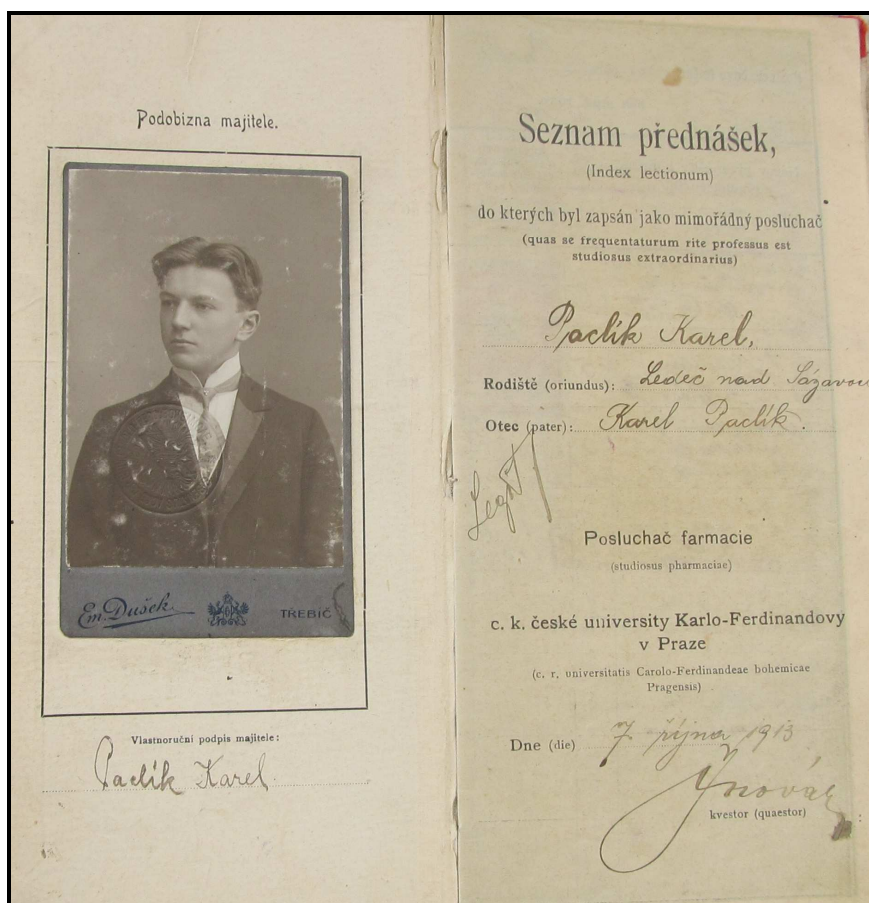 Podobizna majitele.
Em. Dušek
TŘEBÍČ
Vlastnoruční podpis majitele:
Paclík Karel
Seznam přednášek,
(Index lectionum)
do kterých byl zapsán jako mimořádný posluchač
(quas se frequentaturum rite professus est
studiosus extraordinarius)
Paclík Karel,
Rodiště (oriundus): Ledeč nad Sázavou
Otec (pater): Karel Paclík.
Posluchač farmacie
(studiosus pharmaciae)
c. k. české university Karlo-Ferdinandovy
v Praze
(c. r. universitatis Carolo-Ferdinandeae bohemicae
Pragensis)
Dne (die) 7 října 1913
kvestor (quaestor)